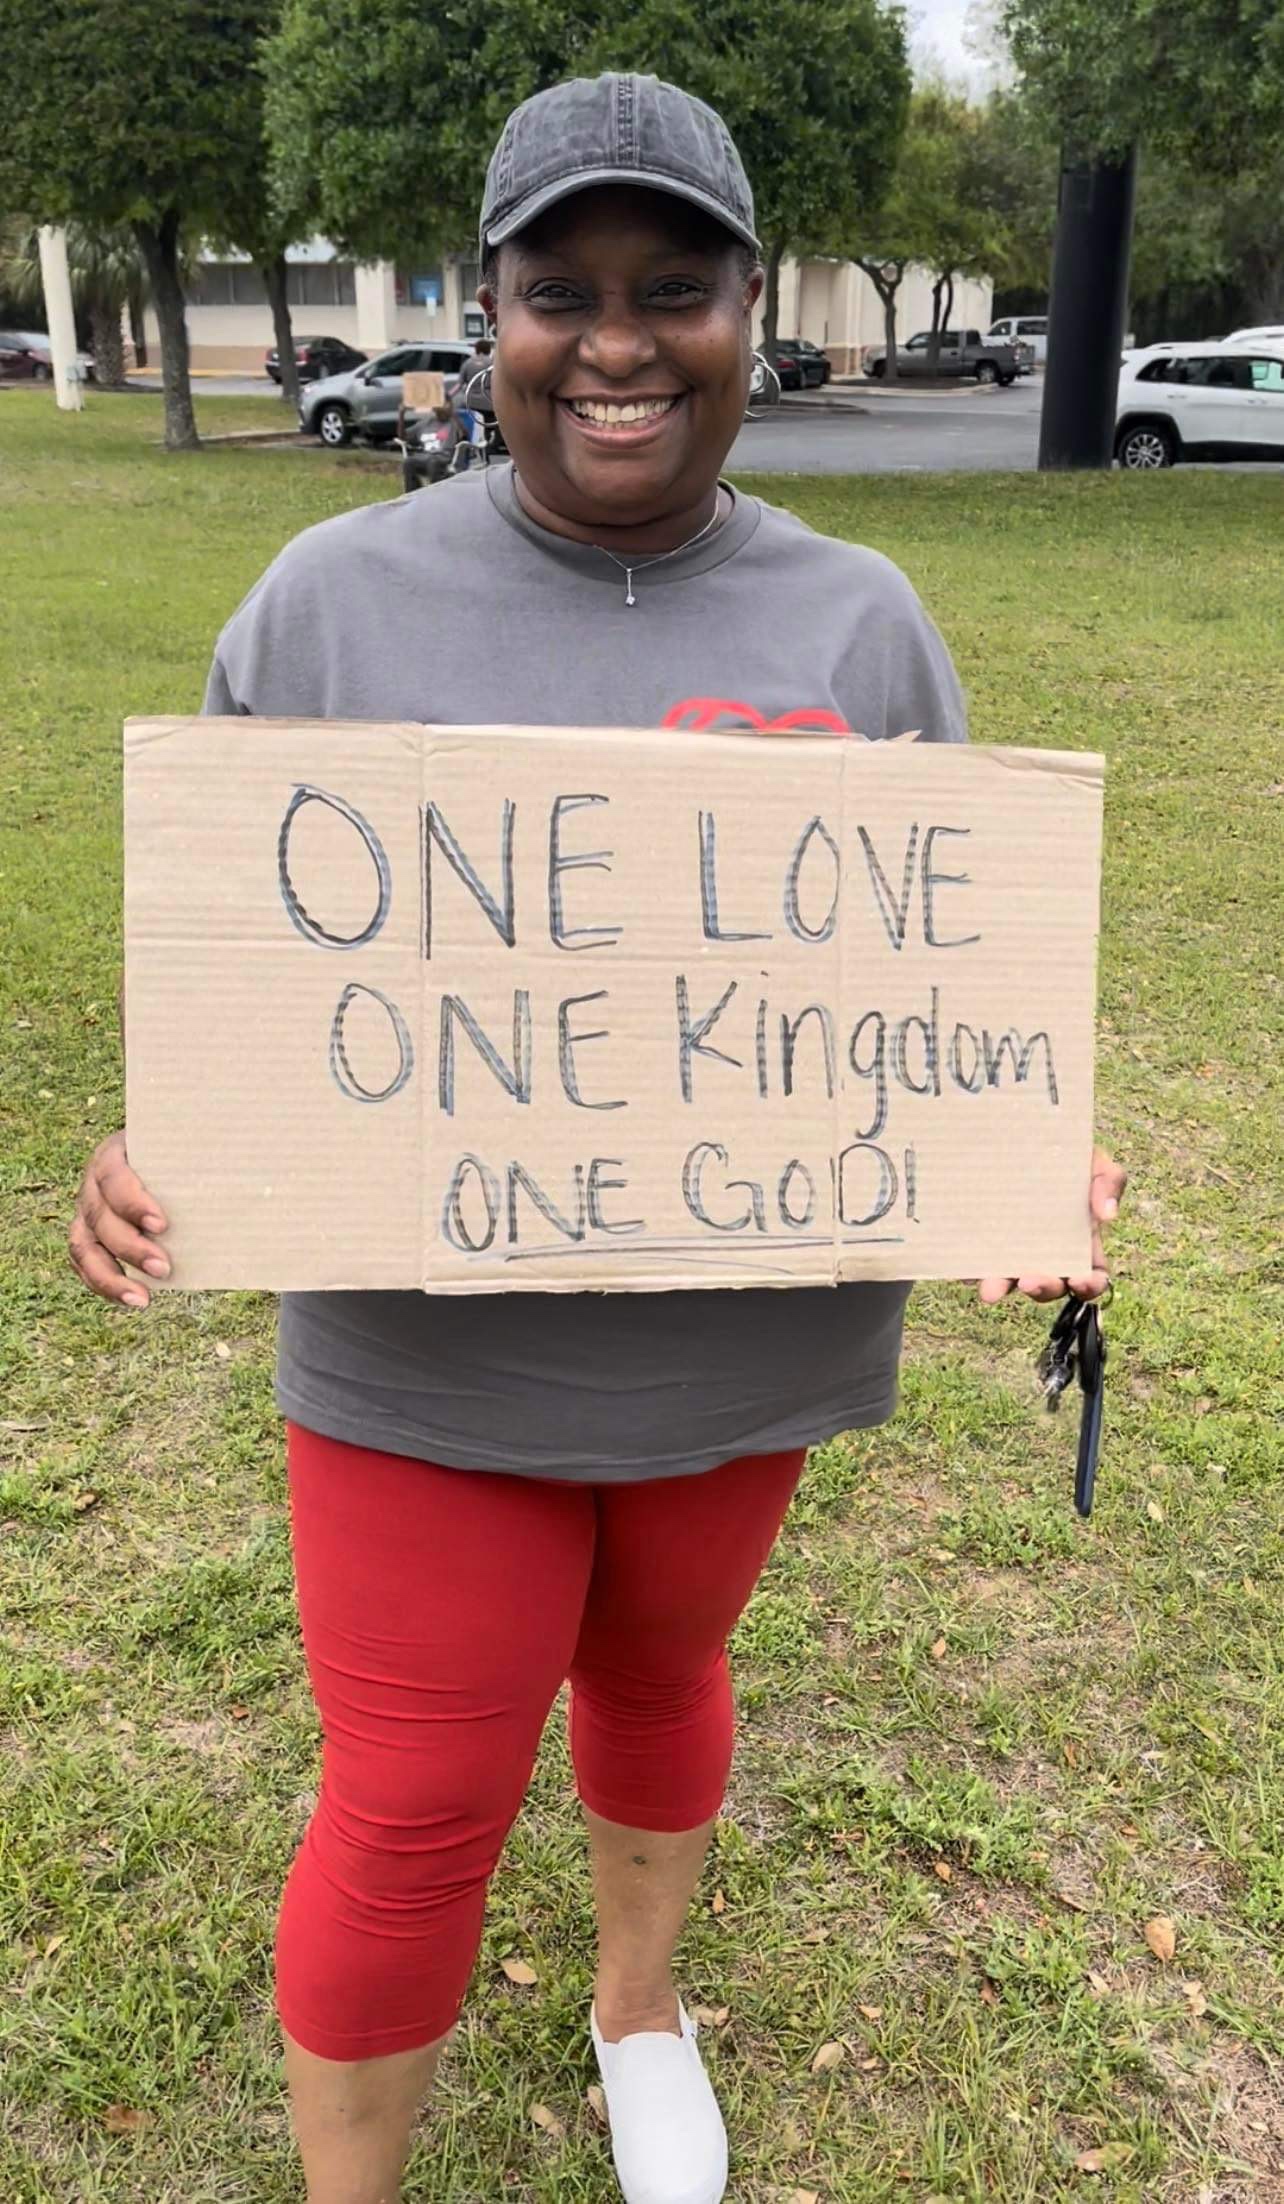 ONE LOVE
ONE Kingdom
ONE GOD!